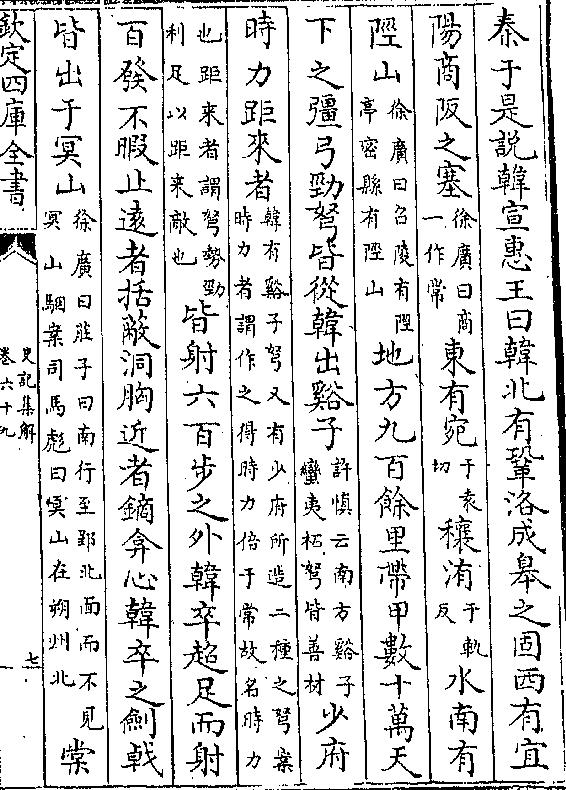 泰于是說韓宣惠王曰韓北有鞏洛成皋之固西有宜
陽商阪之塞徐廣曰商一作常東有宛于袁切穰洧于軌反水南有
陘山徐廣曰召陵有陘亭密縣有陘山地方九百餘里帶甲數十萬天
下之彊弓勁弩皆從韓出谿子許慎云南方谿子蠻夷柘弩皆善材少府
時力距來者韓有谿子弩又有少府所造二種之弩案時力者謂作之得時力倍于常故名時力
也距來者謂弩勢勁利足以距來敵也皆射六百步之外韓卒超足而射
百發不暇止遠者括蔽洞胸近者鏑弇心韓卒之劍戟
皆出于冥山徐廣曰莊子曰南行至郢北面而不見冥山駰案司馬彪曰冥山在朔州北棠
欽定四庫全書
史記集解
卷六十九
七